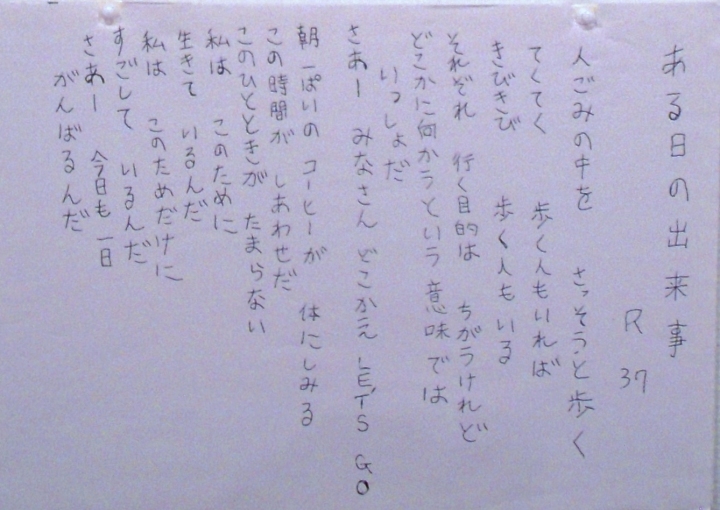 ある日の出来事
R 37
人ごみの中を さっそうと歩く
てくてく 歩く人もいれば
きびきび 歩く人もいる
それぞれ 行く目的は ちがうけれど
どこかに何かうという意味では
いっしょだ
さあー みなさん どこかえ LET'S GO
朝一ぱいの コーヒーが 体にしみる
この時間が しあわせだ
このひとときが たまらない
私は このために
生きて いるんだ
私は このためだけに
すごして いるんだ
さあー 今日も一日
がんばるんだ